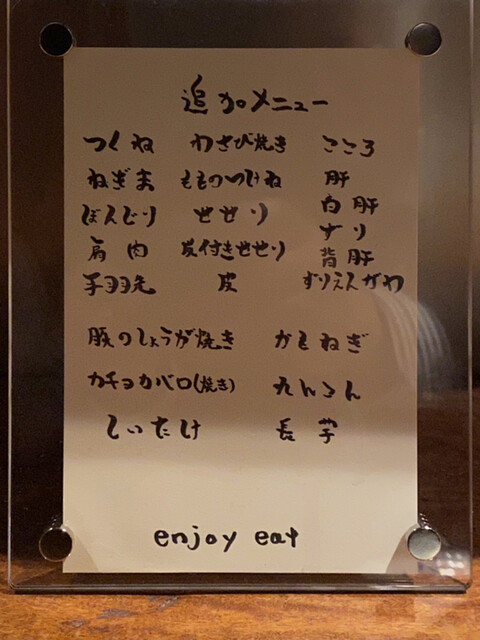 追加メニュー
つくね わさび焼き こころ
ねぎま ももつけね 肝
ぼんじり せせり 白肝
肩肉 皮付きせせり ずり
手羽先 皮 背肝
ずりえんがわ
豚のしょうが焼き かもねぎ
カチョカバロ(焼き) れんこん
しいたけ 長芋
enjoy eat